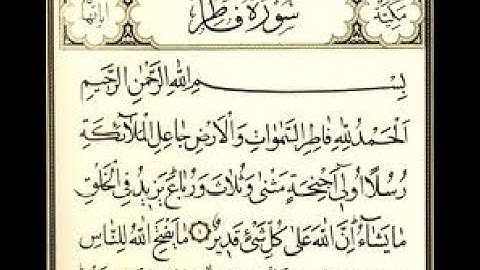 مكية سورة فاطر آياتها
بِسْمِ اللهِ الرَّحْمٰنِ الرَّحِيمِ
اَلْحَمْدُ لِلّٰهِ فَاطِرِ السَّمٰوَاتِ وَالْاَرْضِ جَاعِلِ الْمَلٰٓئِكَةِ
رُسُلًا اُو۬لٓى اَجْنِحَةٍ مَثْنٰى وَثُلَاثَ وَرُبَاعَ يَزِيدُ فِى الْخَلْقِ
مَا يَشَاءُ اِنَّ اللهَ عَلٰى كُلِّ شَىْءٍ قَدِيرٌ مَا يَفْتَحِ اللهُ لِلنَّاسِ